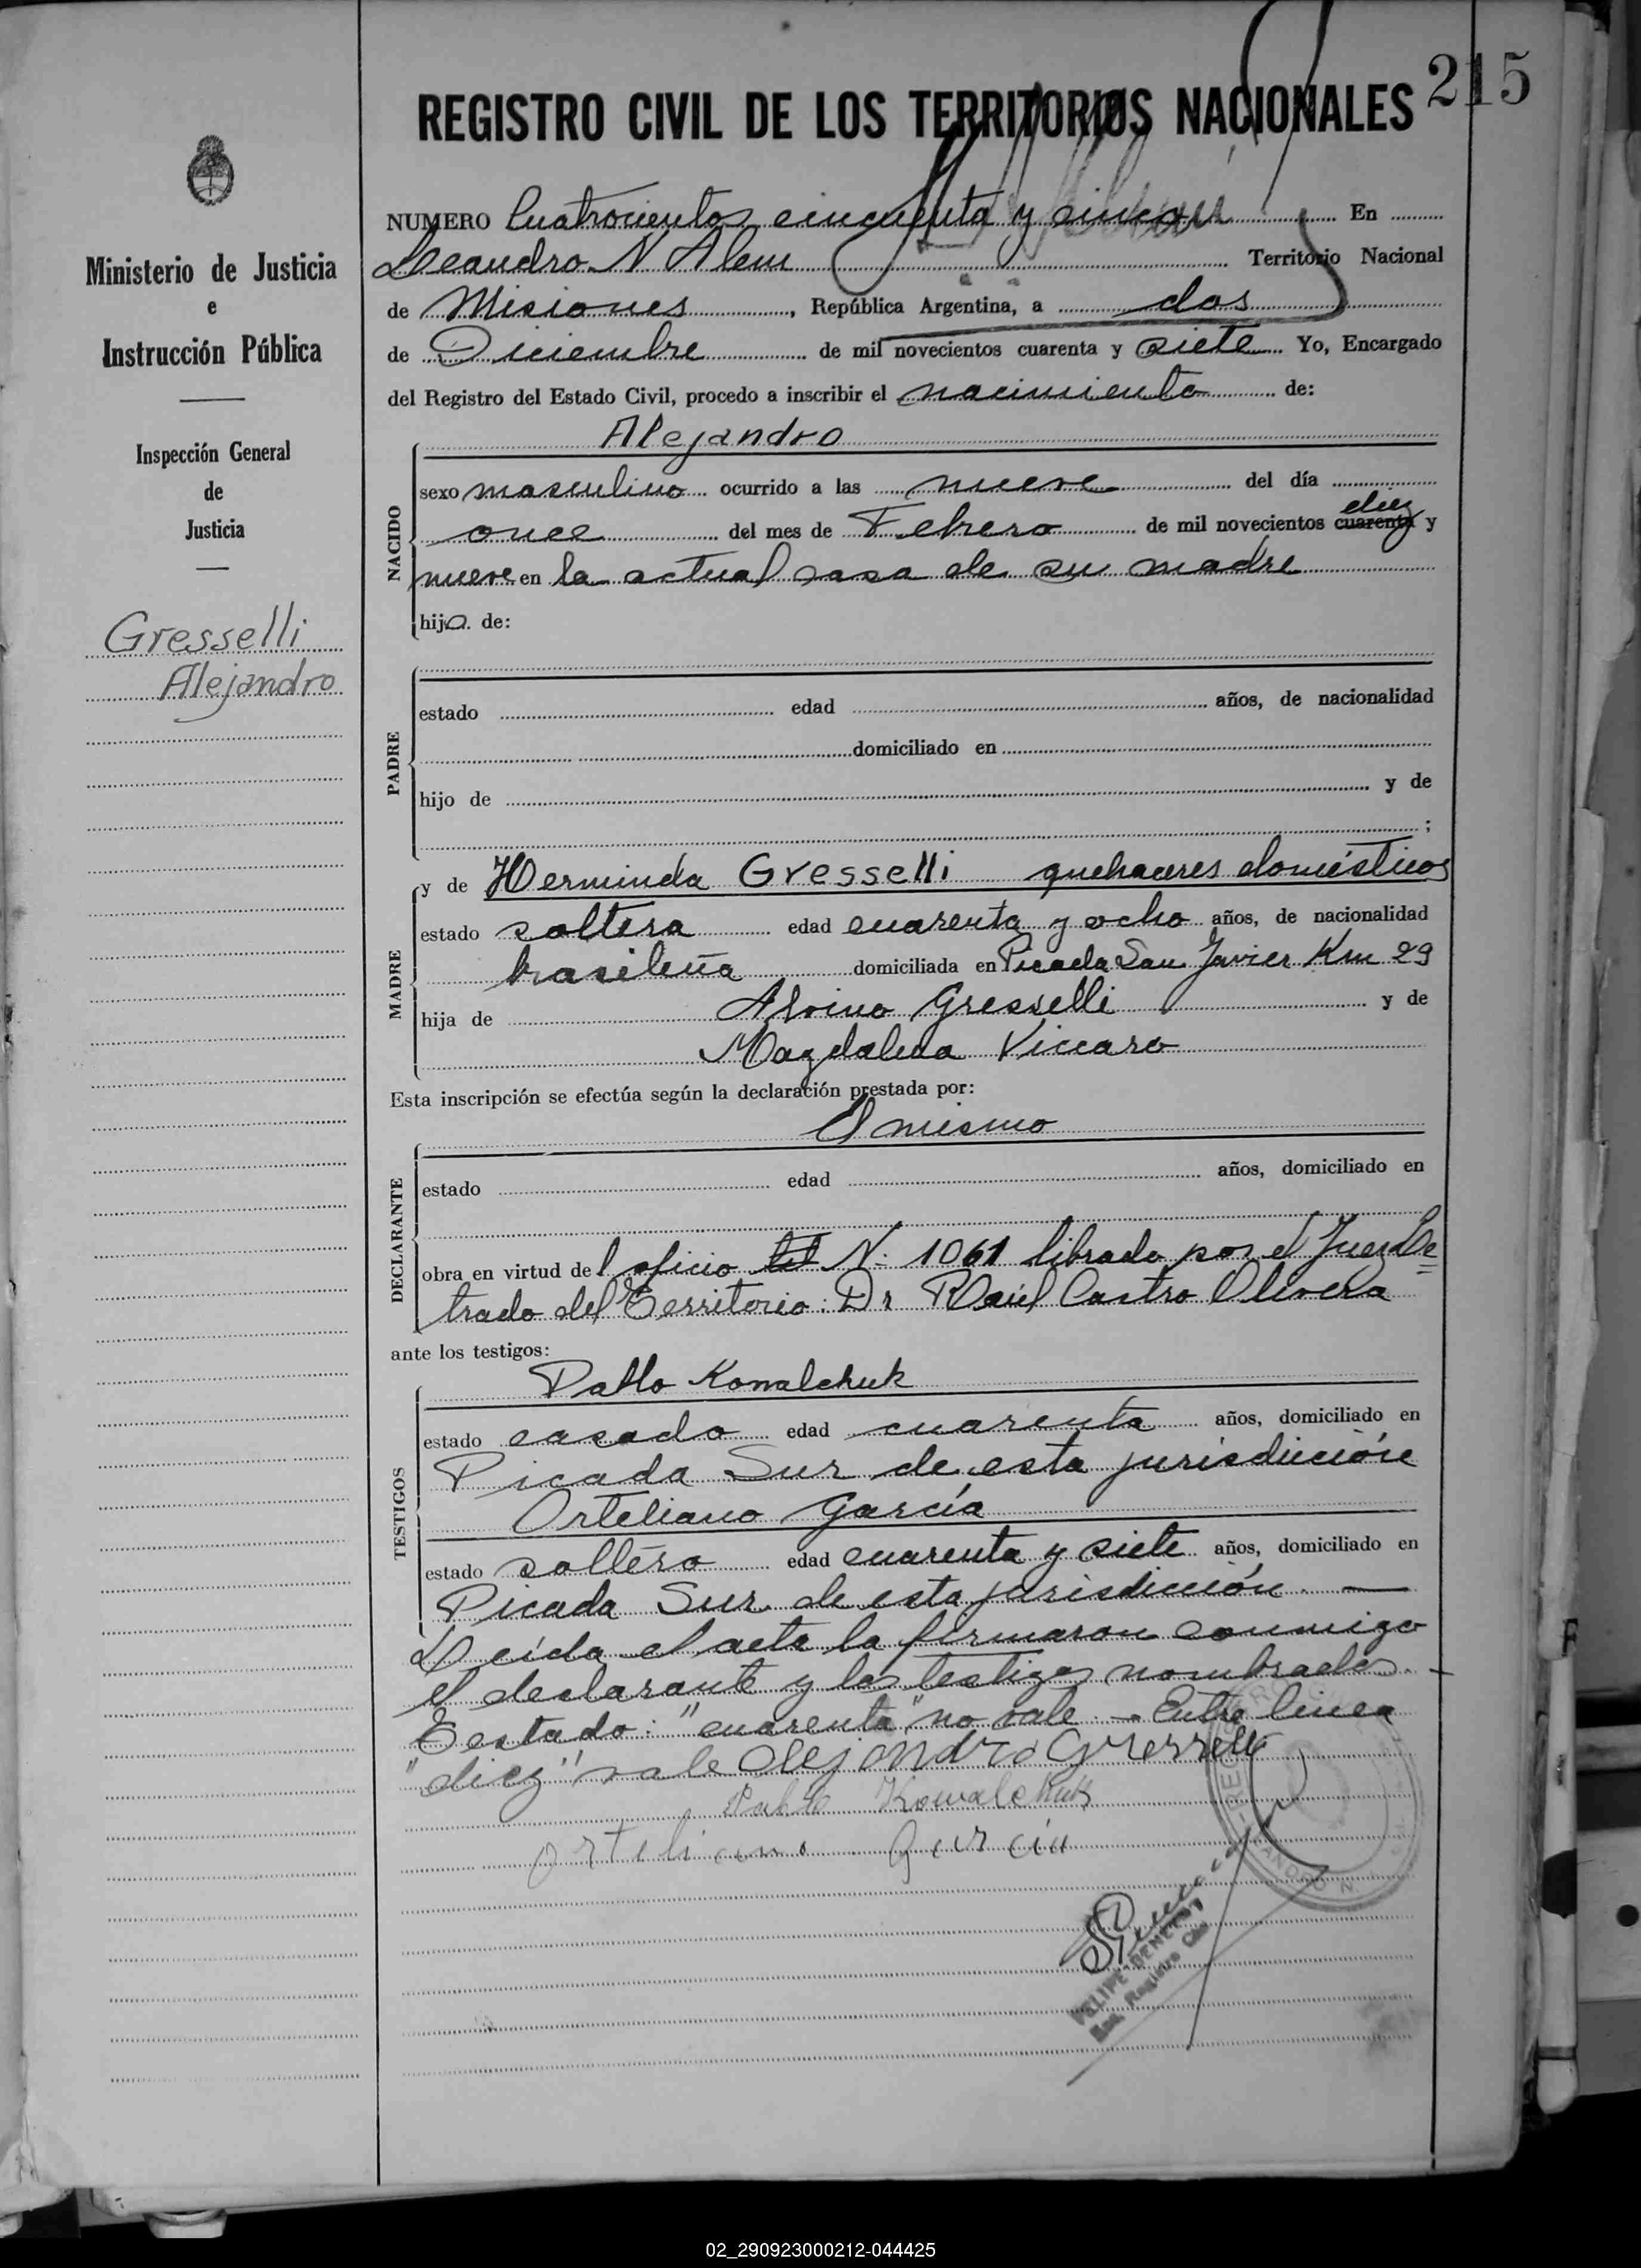 215
REGISTRO CIVIL DE LOS TERRITORIOS NACIONALES
Ministerio de Justicia
e
Instrucción Pública
Inspección General
de
Justicia
Gresselli
Alejandro
NUMERO Cuatrocientos cincuenta y cinco En
Leandro N Alem Territorio Nacional
de Misiones, República Argentina, a dos
de Diciembre de mil novecientos cuarenta y siete Yo, Encargado
del Registro del Estado Civil, procedo a inscribir el nacimiento de:
NACIDO
Alejandro
sexo masculino ocurrido a las nueve del día
diez
once del mes de Febrero de mil novecientos cuarenta y
nueve en la actual casa de su madre
hijo de:
PADRE
estado edad años, de nacionalidad
domiciliado en
hijo de y de
;
MADRE
y de Herminda Gresselli quehaceres domésticos
estado soltera edad cuarenta y ocho años, de nacionalidad
brasileña domiciliada en Picada San Javier Km 29
hija de Alvino Gresselli y de
Magdalena Viccaro
Esta inscripción se efectúa según la declaración prestada por:
DECLARANTE
El mismo
estado edad años, domiciliado en
obra en virtud del oficio N. 1061 librado por el Juez Le
trado del Territorio: Dr Raúl Castro Olivera
ante los testigos:
TESTIGOS
Pablo Kowalchuk
estado casado edad cuarenta años, domiciliado en
Picada Sur de esta jurisdicción
Orteliano García
estado soltero edad cuarenta y siete años, domiciliado en
Picada Sur de esta jurisdicción. —
Leída el acta la firmaron conmigo
el declarante y los testigos nombrados. —
Testado: "cuarenta" no vale. — Entre linea
"diez" vale Alejandro Gresselli
Pablo Kowalchuk
Orteliano Garcia
FELIPE BENE
Enc. Registro Civil
02_290923000212-044425